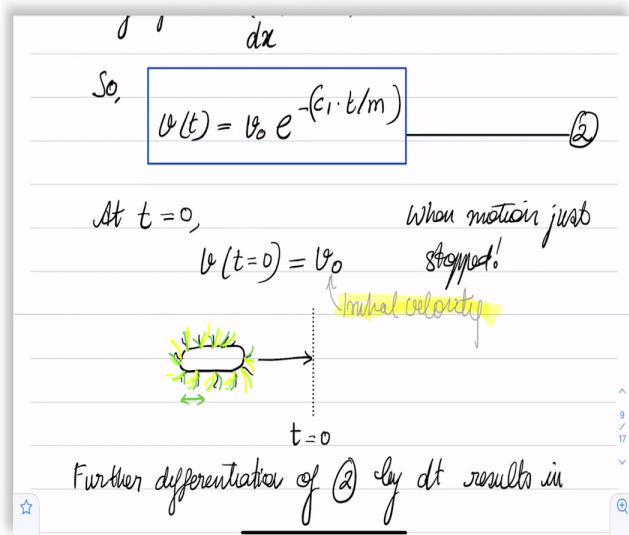 dx
So,
v(t) = v₀ e^-(c₁·t/m) ②
At t = 0, When motion just
v(t=0) = v₀ stopped!
Initial velocity
t = 0
Further differentiation of ② by dt results in
9
/
17